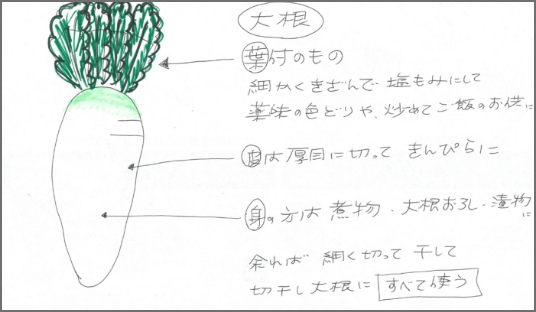 大根
葉付のもの
細かくきざんで 塩もみにして
薬味の色どりや、炒めてご飯のお供に
皮は厚目に切って きんぴらに
身の方は 煮物・大根おろし・漬物に
余れば 細く切って 干して
切干し大根に すべて使う